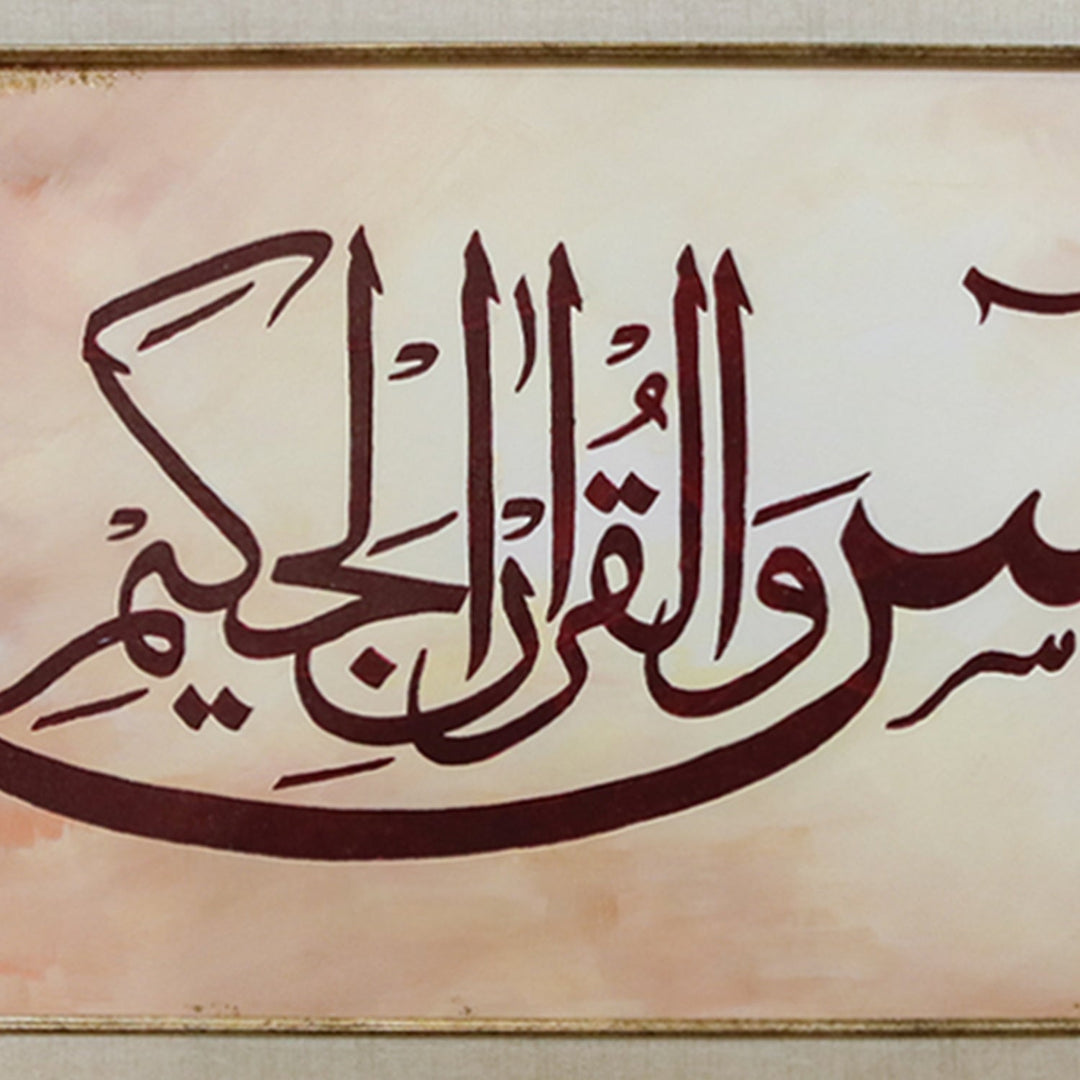 يس وَالْقُرْاٰنِ الْحَكِيمِ